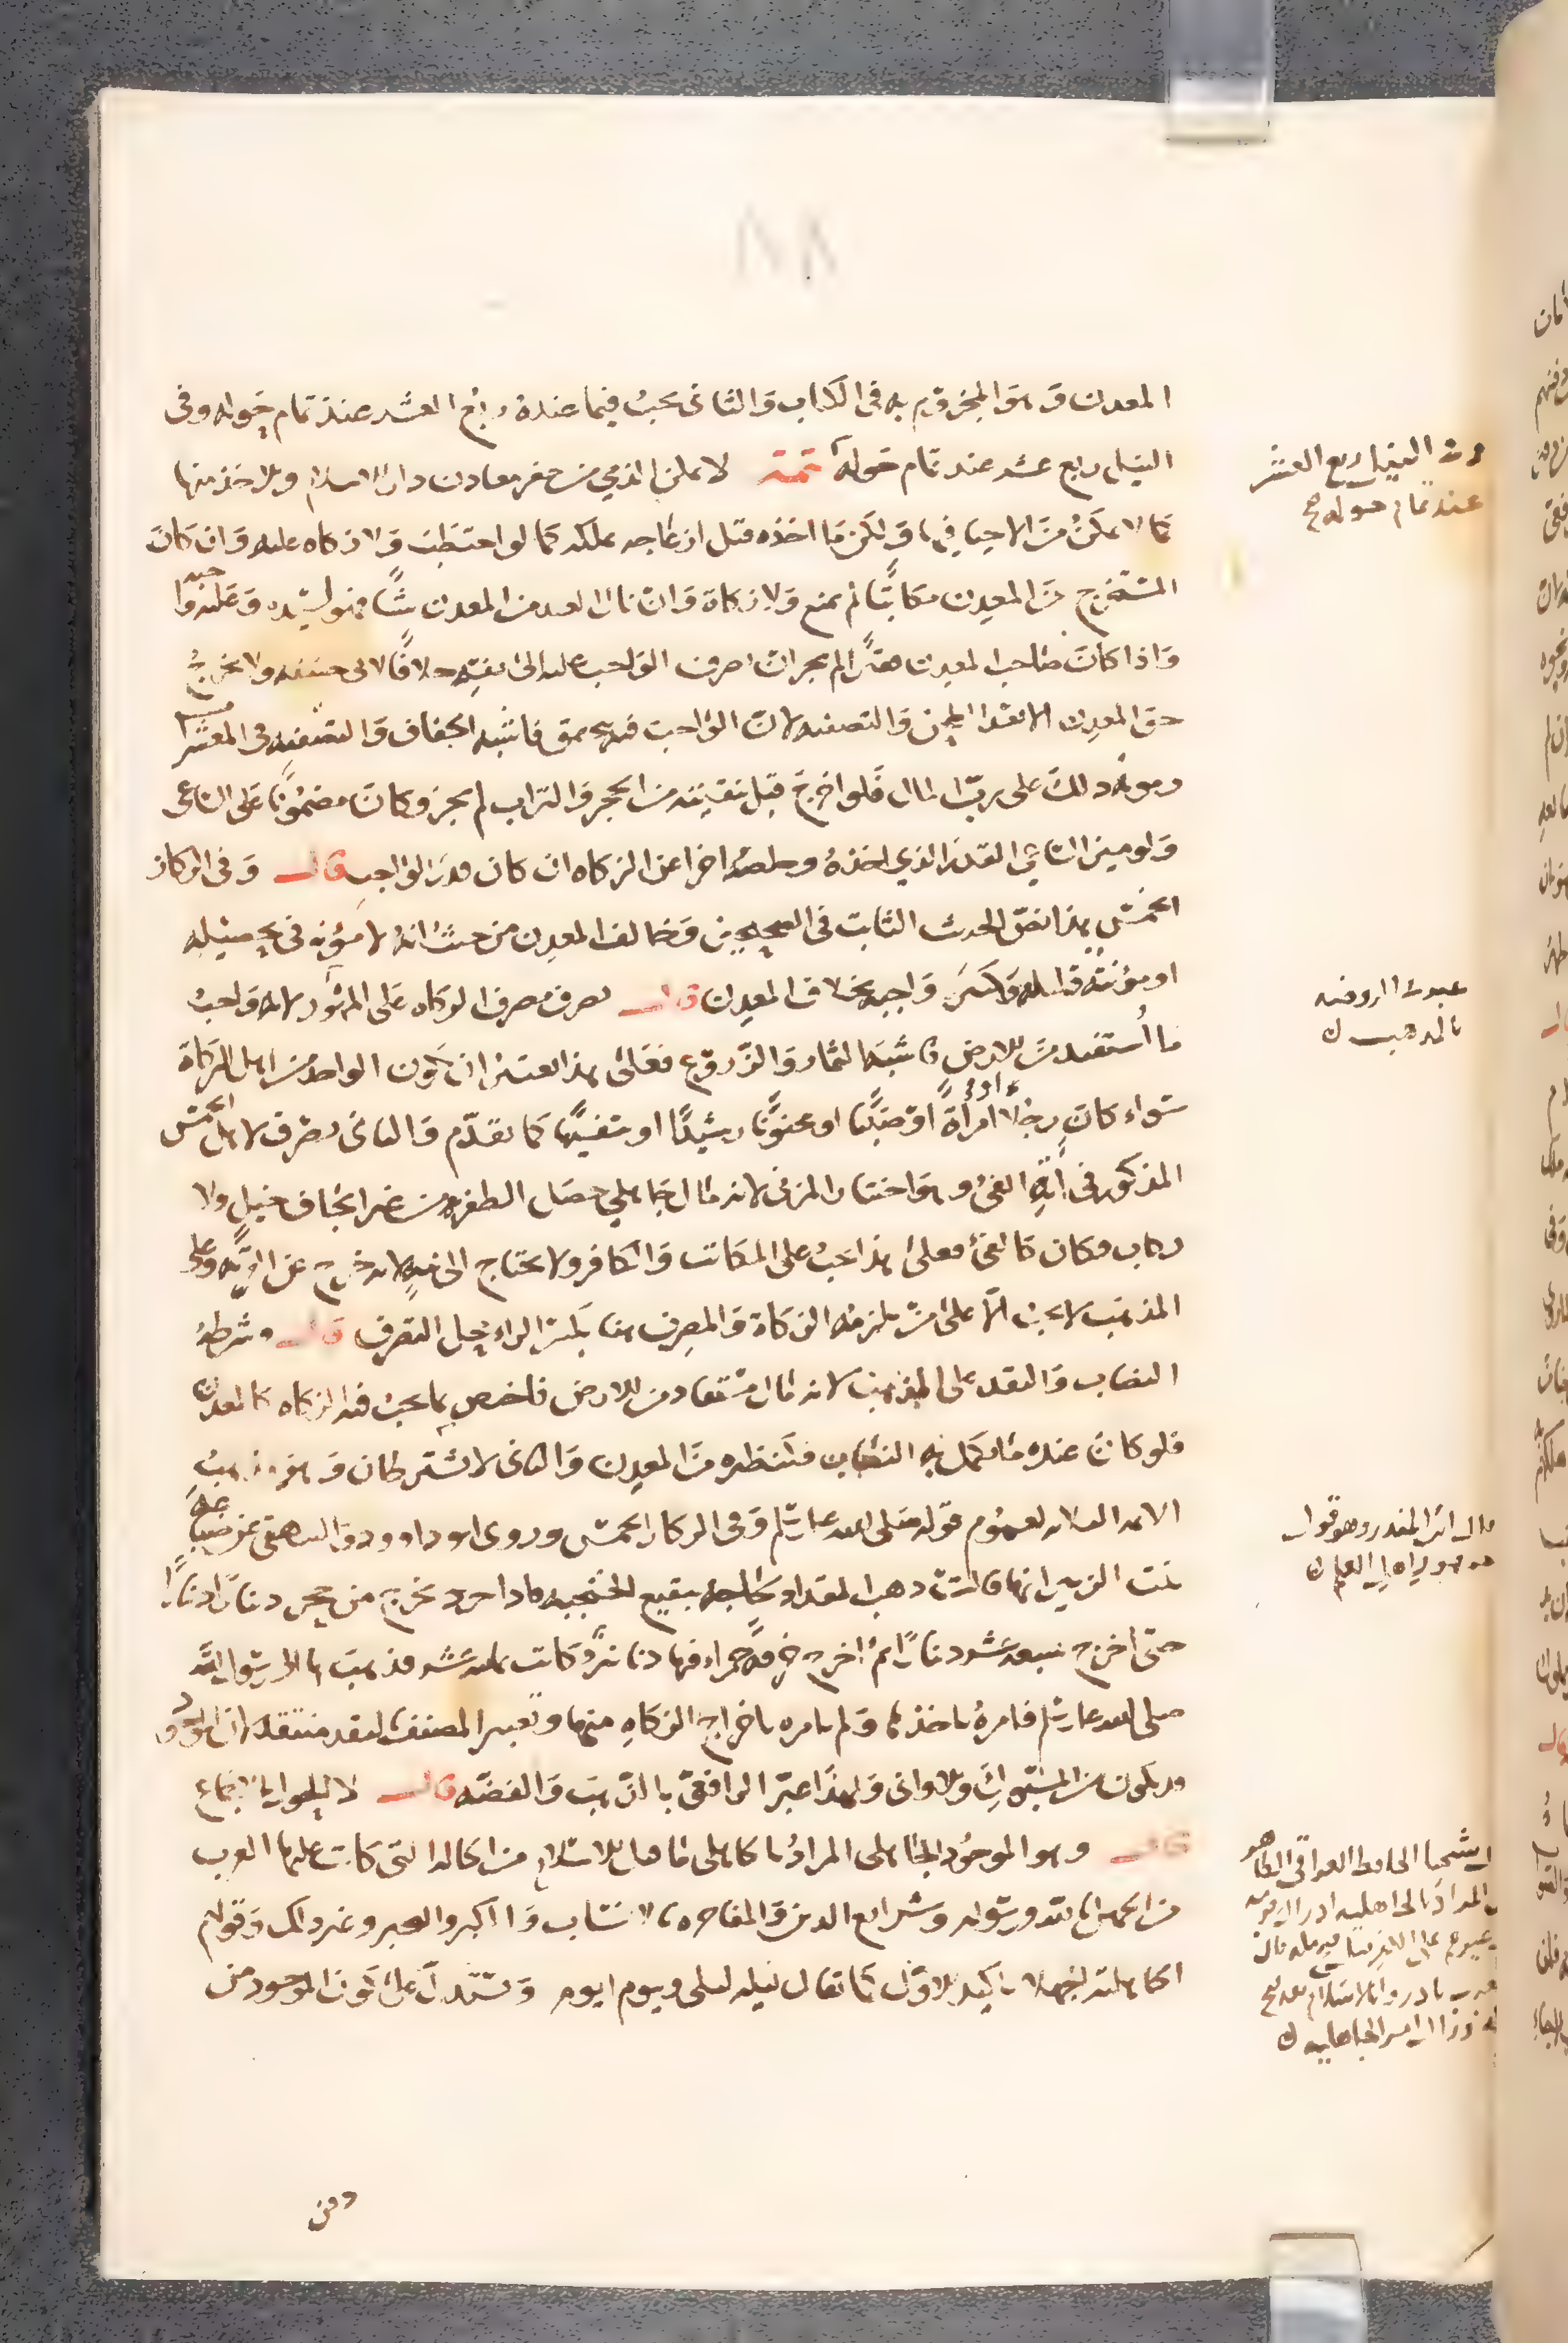 ٨٨
المعدن وهو المجزوم به في الكتاب والثاني يجب فيما عنده ربع العشر عند تمام حوله وفي
النيل ربع عشره عند تمام حوله تتمة لا يمكن الذمي من حفر معادن دار الاسلام والاخذ منها
كما لا يمكن من الاحيا فيها ولكن ما اخذه قبل ازعاجه يملكه كما لو احتطب ولا زكاه عليه وان كان
المستخرج من المعدن مكاتبا لم يمنع ولا زكاة وان نال العبد من المعدن شيا فهو لسيده وعليه واجبه
واذا كان صاحب المعدن لم يجز ان صرف الواجب عليه الى نفسه خلافا لابي حنيفه ولا يخرج
حق المعدن الا بعد الطحن والتصفيه لان الواجب فيه فاشبه الجفاف والتصفيه في المعشرا
ومونه ذلك على رب المال فلو اخرج قبل تنقيته من الحجر والتراب لم يجز وكان مضمونا على الساعي
ولو ميز الساعي القدر الذي اخذه وخلصه اجزا عن الزكاه ان كان قدر الواجب قال وفي الركاز
الخمس هذا نص الحديث الثابت في الصحيحين وخالف المعدن من حيث انه لا مؤنه في تحصيله
او مؤنته قليله وكثر واجبه بخلاف المعدن قال يصرف مصرف الزكاه على المشهور لانه واجب
ما استفيد من الارض فاشبه الثمار والزروع فعلى هذا يعتبر ان يكون الواجد من اهل الزكاة
سواء كان رجلا او امرأة او صبيا او مجنونا رشيدا او سفيها كما تقدم والثاني يصرف لاهل الخمس
المذكور في آية الفئ وهو اختيار المزني لانه مال جاهلي حصل الظفر به من غير ايجاف خيل ولا
ركاب فكان كالفئ فعلى هذا يجب على المكاتب والكافر ولا يحتاج الى نيه لانه خرج عن القربه وعلى
المذهب لا يجب الا على من تلزمه الزكاة والمصرف هنا بكسر الراء محل التصرف قال وشرطه
النصاب والنقد على المذهب لانه مال مستفاد من الارض فاختص بما يجب فيه الزكاه كالمعدن
فلو كان عنده ما يكمل به النصاب فكنظيره من المعدن والثاني لا يشترطان وهو مذهب
الايمه الثلاثه لعموم قوله صلى الله عليه وسلم وفي الركاز الخمس وروى ابو داوود والبيهقي عن ضباعة
بنت الزبير انها قالت ذهب المقداد لحاجه ببقيع الخبخبه فاذا جرد يخرج من جحر دينارا دينارا
حتى اخرج سبعه عشر دينارا ثم اخرج خرقة حمراء فيها دينار وكانت ثمانيه عشر فذهب بها الى رسول الله
صلى الله عليه وسلم فامره باخذها ولم يامره باخراج الزكاه منها وتعبير المصنف بالنقد منتقد لان الموجود
قد يكون من المسبوك والاواني ولهذا عبر الرافعي بالذهب والفضه قال لا الحول بالاجماع
قال وهو الموجود الجاهلي المراد بالجاهلي ما قبل الاسلام من الحاله التي كانت عليها العرب
من الجهل بالله ورسوله وشرايع الدين والمفاخره بالانساب والكبر والتجبر وغير ذلك وقولهم
الجاهلية الجهلا تاكيد للاول كما يقال ليله ليلى ويوم ايوم وتستدل على كون الموجود من
دفن
من النيل ربع العشر
عند تمام حوله صح
عبر في الروضه
بالمذهب
قال ابن المنذر وهو قول
جمهور اهل العلم
شيخنا الحافظ العراقي الظاهر
المراد بالجاهليه